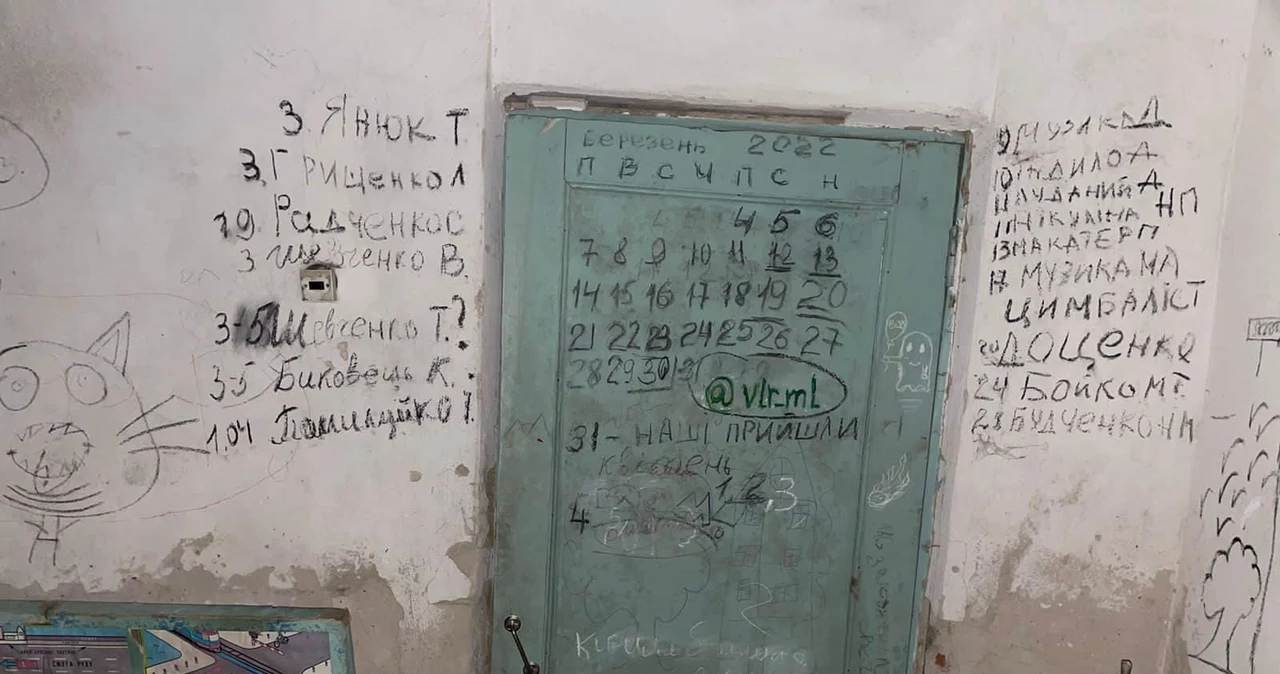 3. ЯНЮК Т
3. ГРИЩЕНКО Л
19. Радченко С
3 Шевченко В.
3-5 Шевченко Т.?
3-5 Биковець К.
1.04
Березень 2022
П В С Ч П С Н
4 5 6
7 8 9 10 11 12 13
14 15 16 17 18 19 20
21 22 23 24 25 26 27
28 29 30 31
@vlr_ml
31 - НАШІ ПРИЙШЛИ
квітень
1 2 3
4
9 МУЗИКА Д
НП
11 НІКУЛІНА
13 МАКАТЕР П
17 МУЗИКА МА
ЦИМБАЛІСТ
20 ДОЩЕНКО
24 БОЙКО МГ
28 БУДЧЕНКО НМ
СМУГА РУХУ